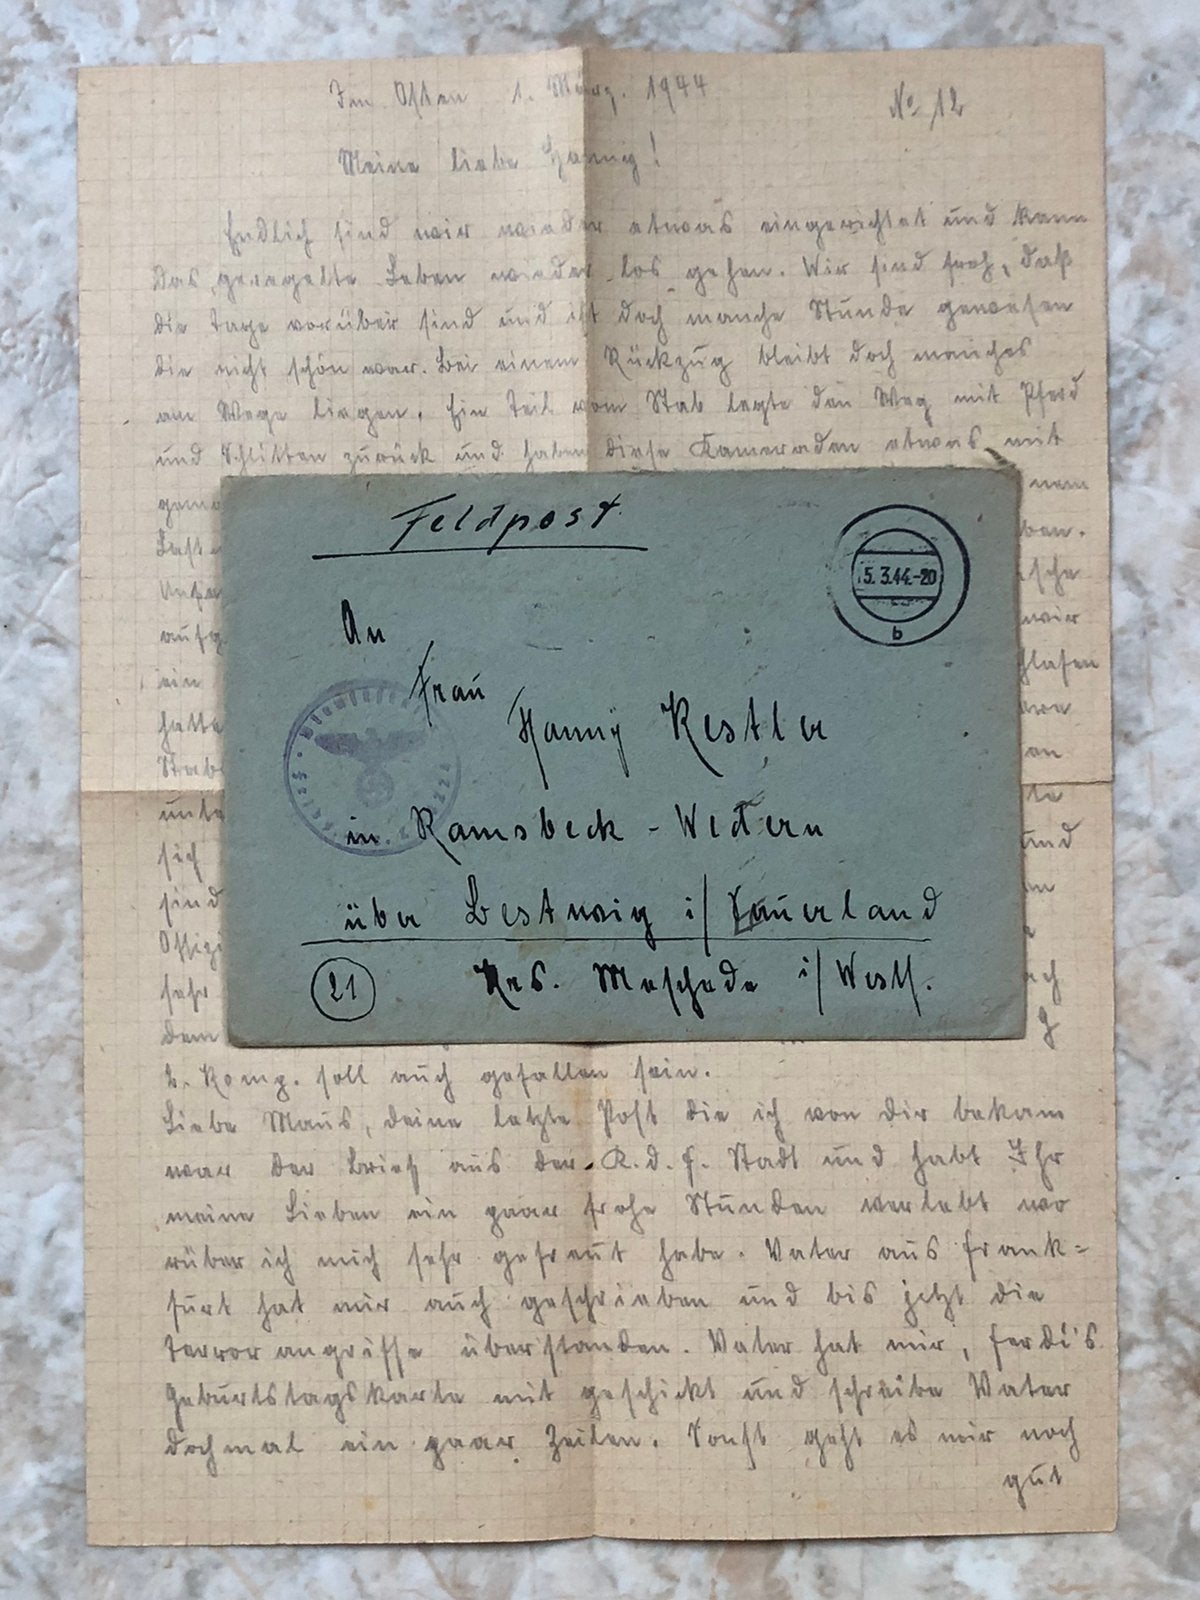 Im Osten 1. März. 1944
No 12
Meine liebe Hanny!
Endlich sind wir wieder etwas eingerichtet und kann
das geregelte Leben wieder los gehen. Wir sind froh, daß
die Tage vorüber sind und ist doch manche Stunde gewesen
die nicht schön war. Bei einem Rückzug bleibt doch manches
am Wege liegen. Ein Teil vom Stab legte den Weg mit Pferd
und Schlitten zurück und haben diese Kameraden etwas mit
nem
ben.
wir
ein
hatte
sich
und
sind
sehr
dem
Feldpost
5.3.44.-20
b
An
Frau
Hanny Restler
in Ramsbeck - Werdern
über Bestwig i/ Sauerland
21
Krs. Meschede i/ Westf.
2. Komp. soll auch gefallen sein.
Liebe Maus, deine letzte Post die ich von dir bekam
war der Brief aus der K.d.F. Stadt und habt Ihr
meine Lieben ein paar frohe Stunden verlebt wo
rüber ich mich sehr gefreut habe. Vater aus Frank=
furt hat mir auch geschrieben und bis jetzt die
Terrorangriffe überstanden. Vater hat mir, Ferdi's
Geburtstagskarte mit geschickt und schreibe Vater
dochmal ein paar Zeilen. Sonst geht es mir noch
gut